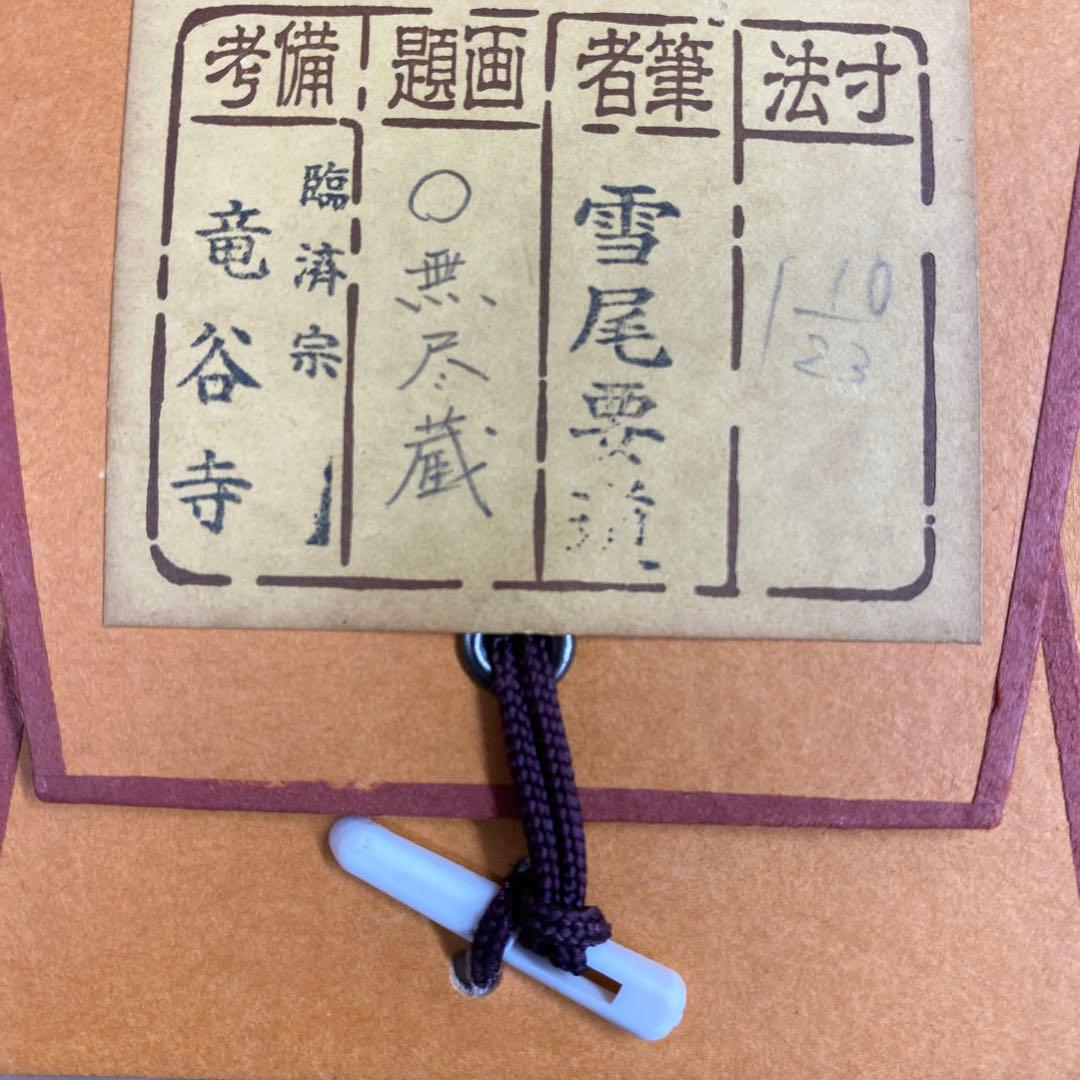 寸法
10
23
筆者
雪尾要
画題
○無尽蔵
備考
臨済宗
竜谷寺